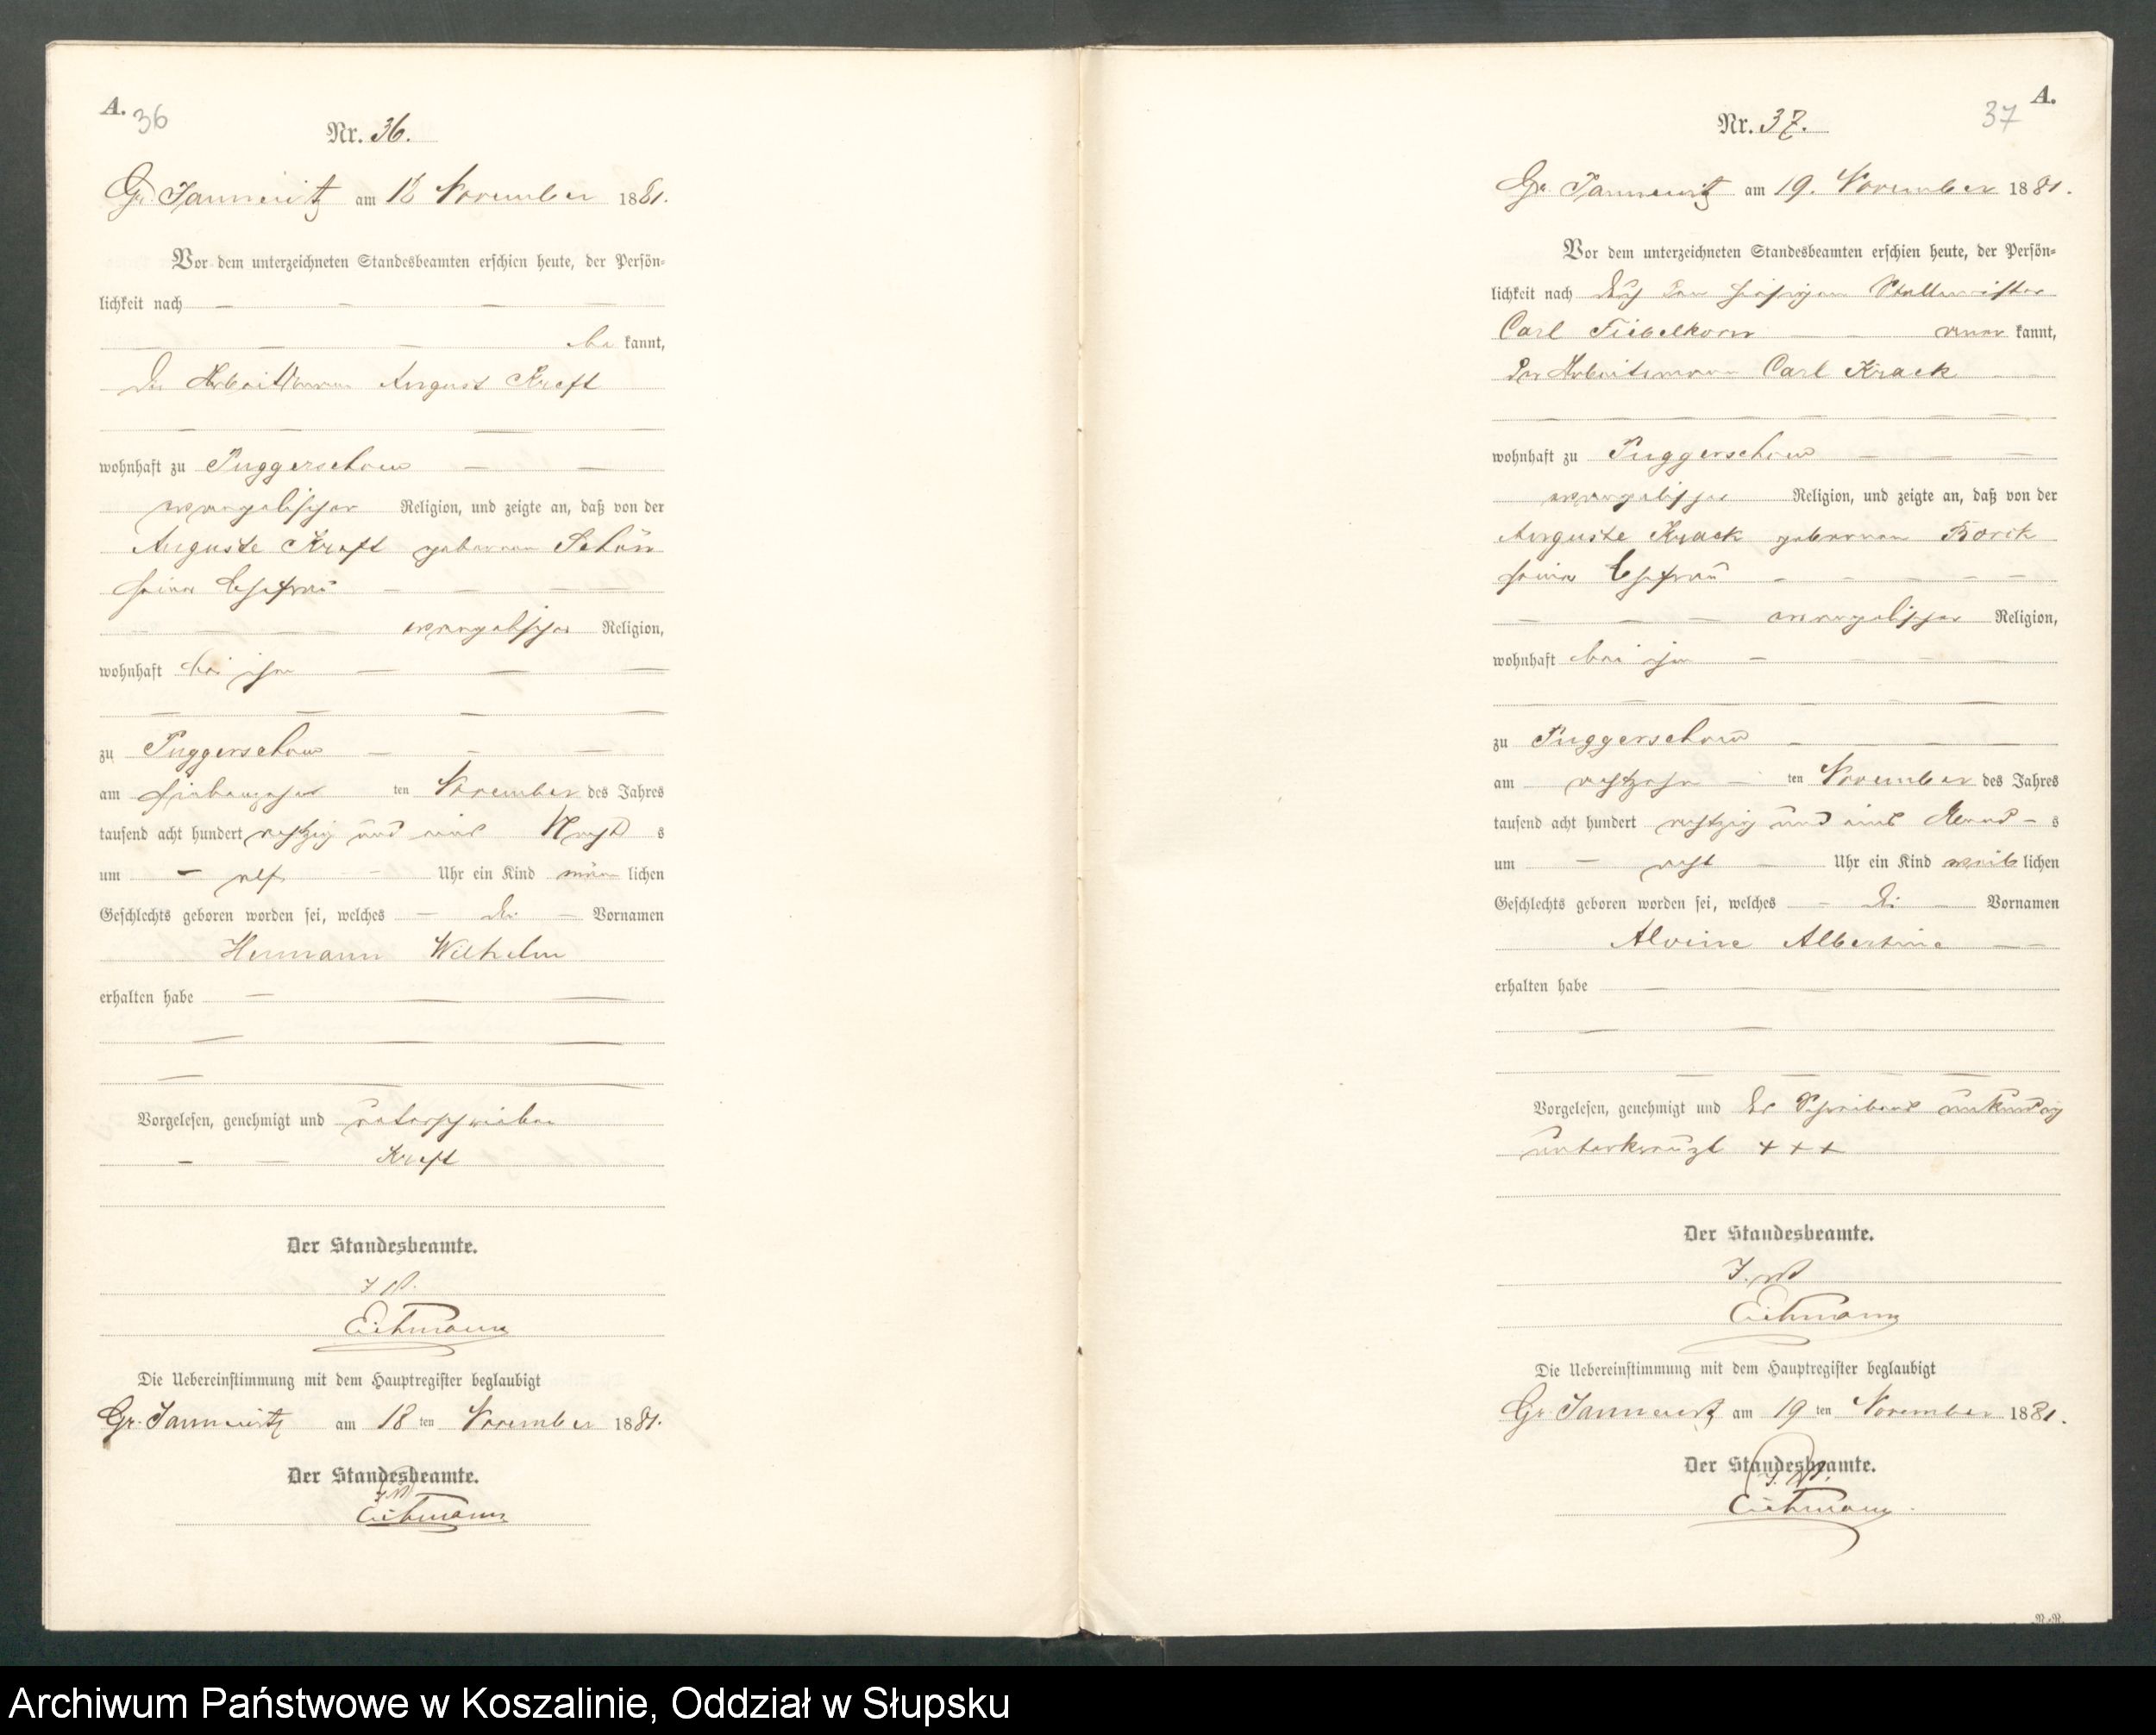 A.
36
Nr. 36.
Gr. Jannewitz am 18 November 1881.
Vor dem unterzeichneten Standesbeamten erschien heute, der Persön-
lichkeit nach
be kannt,
der Arbeitsmann August Kreft
wohnhaft zu Puggerschow
evangelischer Religion, und zeigte an, daß von der
Auguste Kreft geborenen Schön
seiner Ehefrau
evangelischer Religion,
wohnhaft bei ihm
zu Puggerschow
am siebenzehn ten November des Jahres
tausend acht hundert achtzig und eins Nacht s
um elf Uhr ein Kind männ lichen
Geschlechts geboren worden sei, welches die Vornamen
Hermann Wilhelm
erhalten habe
Vorgelesen, genehmigt und unterschrieben
Kreft
Der Standesbeamte.
I. V.
Eichmann
Die Uebereinstimmung mit dem Hauptregister beglaubigt
Gr. Jannewitz am 18 ten November 1881.
Der Standesbeamte.
I. V.
Eichmann
A.
37
Nr. 37.
Gr. Jannewitz am 19. November 1881.
Vor dem unterzeichneten Standesbeamten erschien heute, der Persön-
lichkeit nach durch den hiesigen Stellmeister
Carl Fiebelkorn aner kannt,
der Arbeitsmann Carl Krack
wohnhaft zu Puggerschow
evangelischer Religion, und zeigte an, daß von der
Auguste Krack geborenen Borck
seiner Ehefrau
evangelischer Religion,
wohnhaft bei ihm
zu Puggerschow
am achtzehn ten November des Jahres
tausend acht hundert achtzig und eins Abend s
um acht Uhr ein Kind weib lichen
Geschlechts geboren worden sei, welches die Vornamen
Alvine Albertine
erhalten habe
Vorgelesen, genehmigt und des Schreibens unkundig
unterkreuzt + + +
Der Standesbeamte.
I. V.
Eichmann
Die Uebereinstimmung mit dem Hauptregister beglaubigt
Gr. Jannewitz am 19 ten November 1881.
Der Standesbeamte.
I. V.
Eichmann
Archiwum Państwowe w Koszalinie, Oddział w Słupsku